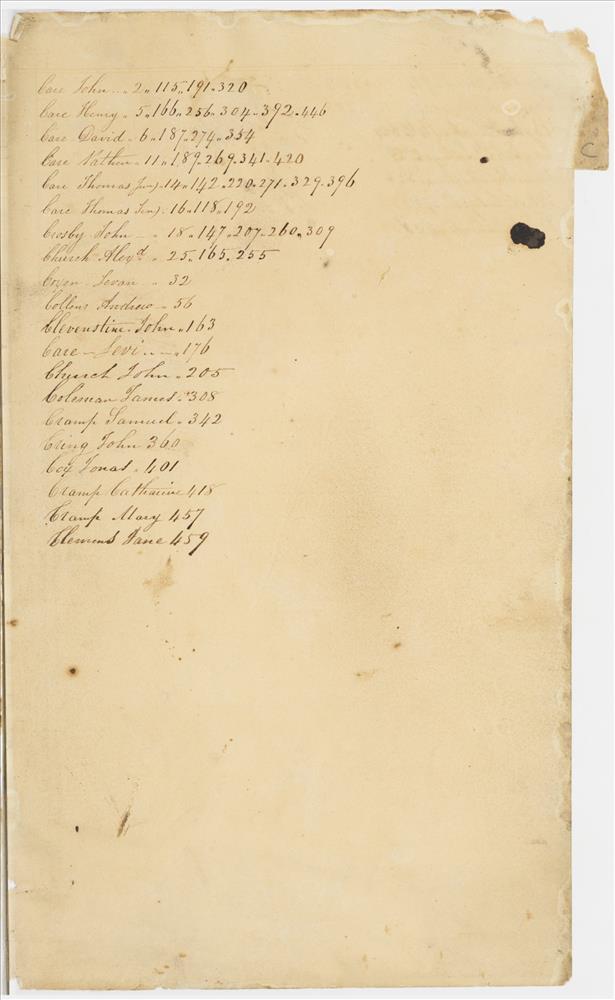 Care John .. " 2 " 115 " 191 " 320
Care Henry " 5 " 166 " 256 " 304 " 392 " 446
Care David " 6 " 187 " 274 " 354
Care Nathan " 11 " 189 " 269 " 341 " 420
Care Thomas Jun) " 14 " 142 " 220 " 271 " 329 " 396
Care Thomas Sen) " 16 " 118 " 192
Crosby John — " 18 " 147 " 207 " 260 " 309
Church Alexd " 25 " 165 " 255
Levan — " 32
Collens Andrew — " 56
Clevenstine John " 163
Care — Levi .. — " 176
Church John " 205
Coleman James " 308
Cramp Samuel " 342
Cring John 360
Cox Jonas " 401
Cramp Catharine 418
Cramp Mary 457
Clemens Jane 459
C